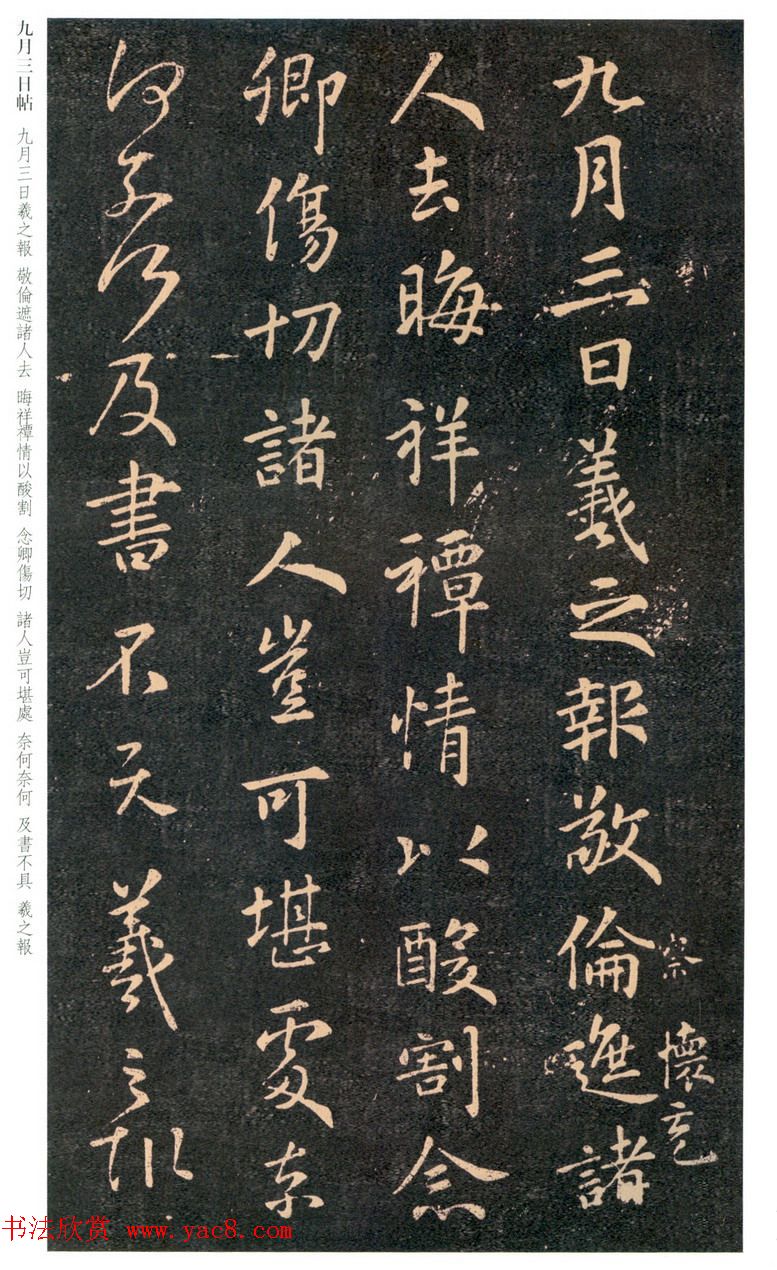 九月三日羲之報敬倫遮諸
人去晦祥禫情以酸割念
卿傷切諸人豈可堪處奈
何奈何及書不具羲之報
察 懷充
九月三日帖 九月三日羲之報 敬倫遮諸人去 晦祥禫情以酸割 念卿傷切 諸人豈可堪處 奈何奈何 及書不具 羲之報
书法欣赏 www.yac8.com